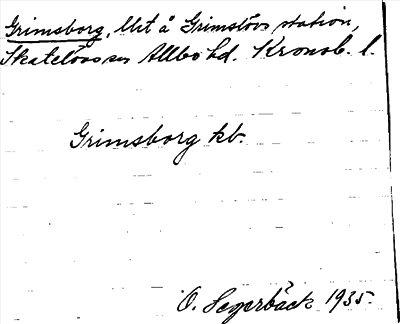 Grimsborg, lht å Grimslövs station,
Skatelövs sn Allbo hd. Kronob. l.
Grimsborg kb.
O. Segerbäck 1935.